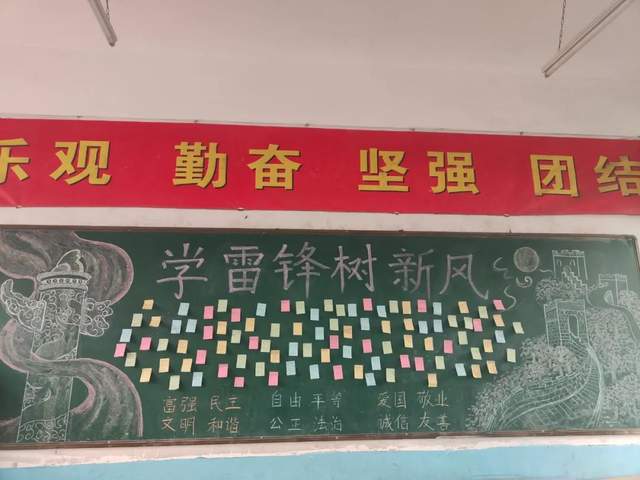 乐观 勤奋 坚强 团结
学雷锋树新风
富强 民主 自由 平等 爱国 敬业
文明 和谐 公正 法治 诚信 友善